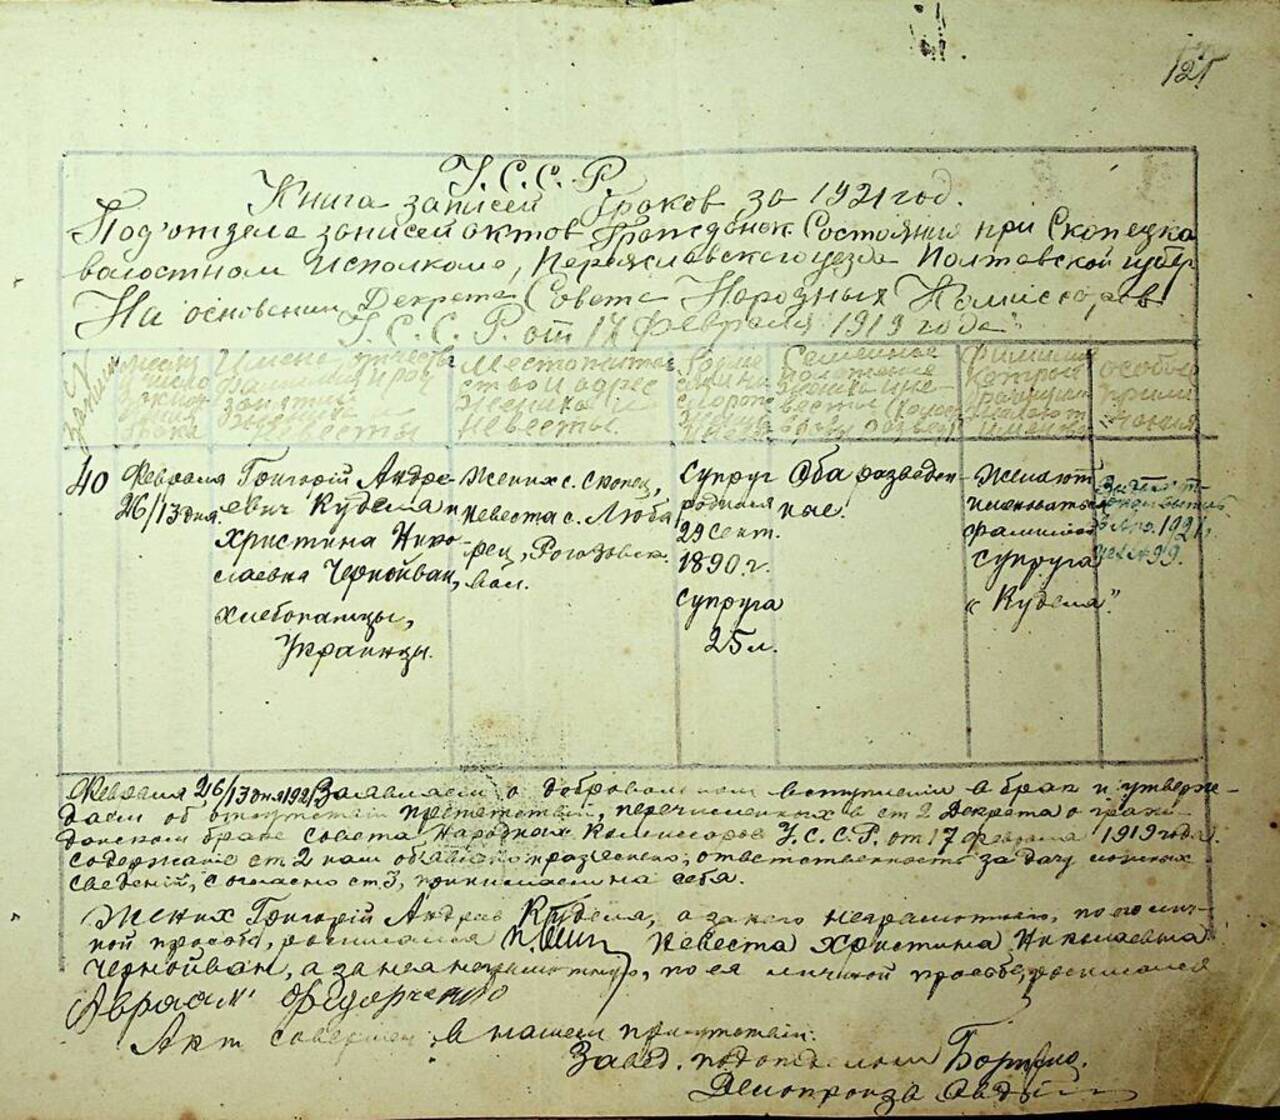 125
У.С.С.Р.
Книга записей браков за 1921 год.
Под'отдела записей актов Гражданск. Состояния при Скопецко
волостном Исполкоме, Переяславского уезда Полтавской губер
На основании Декрета Совета Народных Комиссаров
У.С.С.Р. от 17 февраля 1919 года
№ записи
месяц и число
Имена отчества фамилия и род занятий жениха невесты
Местожительство и адрес жениха и невесты
Семейное положение жениха и невесты
Фамилия которой брачущиеся желают именов
особые примечания
40
Февраля 26/13 дня.
Григорій Андре-
евич Куделя и
Христина Нико-
лаевна Чернойван,
хлебопашцы,
Украинцы.
Жених с. Скопец,
Невеста с. Люба
рец, Рогозовск.
вол.
Супруг
родился
29 сент.
1890 г.
Супруга
25 л.
Оба разведен-
ные.
Желают
именоваться
фамилией
супруга
„Куделя".
1921
№ 99.
Февраля 26/13 дня 1921 Заявляем о добровольном вступлении в брак и утверж-
даем об отсутствии препятствий, перечисленных в ст 2 Декрета о граж-
данском браке Совета Народных Комиссаров У.С.С.Р. от 17 февраля 1919 года.
содержание ст 2 нам об'явлено разъяснено, ответственность за дачу ложных
сведений, согласно ст. 3, принимаем на себя.
Жених Григорій Андрев Куделя, а за него неграмотного, по его лич-
ной просьбе, росписался Невеста Христина Николаевна
Чернойван, а за нея неграмотную, по ея личной просьбе, росписался
Авраам Федорченко
Акт совершен в нашем присутствии:
Завед. подотделом
Делопроизв.